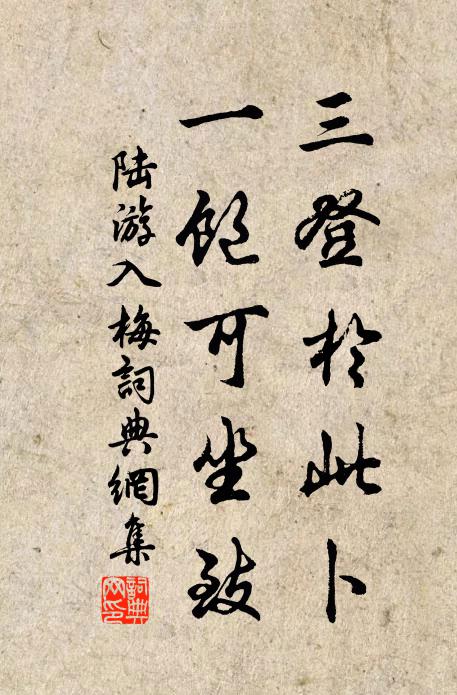 三登於此卜
一飽可坐致
陆游入梅詞典網集
詞典網印